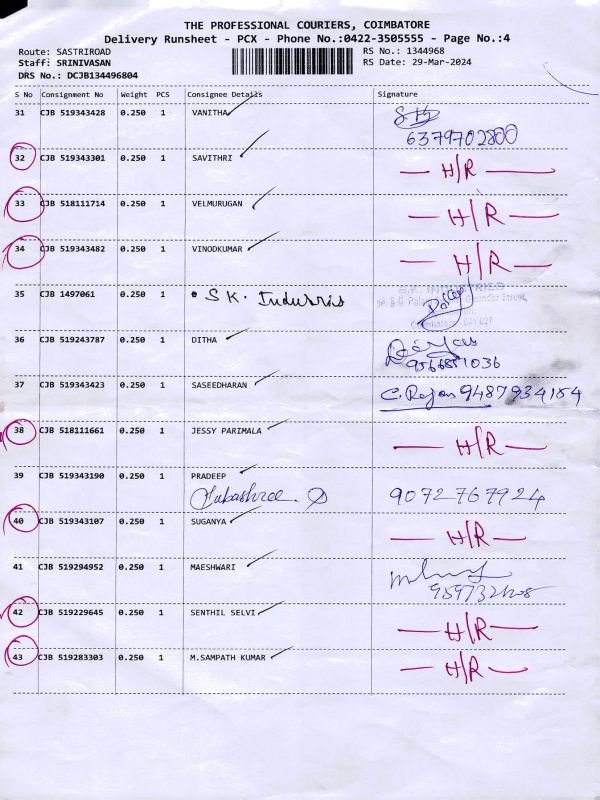 THE PROFESSIONAL COURIERS, COIMBATORE
Delivery Runsheet - PCX - Phone No.:0422-3505555 - Page No.:4
Route: SASTRIROAD RS No.: 1344968
Staff: SRINIVASAN RS Date: 29-Mar-2024
DRS No.: DCJB134496804
S No Consignment No Weight PCS Consignee Details Signature
31 CJB 519343428 0.250 1 VANITHA
6379702800
32 CJB 519343301 0.250 1 SAVITHRI — H/R —
33 CJB 518111714 0.250 1 VELMURUGAN — H/R —
34 CJB 519343482 0.250 1 VINODKUMAR — H/R —
35 CJB 1497061 0.250 1 S K. Industris S.K. INDUSTRIES
Gounder Street,
36 CJB 519243787 0.250 1 DITHA
37 CJB 519343423 0.250 1 SASEEDHARAN C. Rajan 9487934154
38 CJB 518111661 0.250 1 JESSY PARIMALA — H/R —
39 CJB 519343190 0.250 1 PRADEEP
Subashree. 9072767924
40 CJB 519343107 0.250 1 SUGANYA — H/R —
41 CJB 519294952 0.250 1 MAESHWARI
42 CJB 519229645 0.250 1 SENTHIL SELVI — H/R —
43 CJB 519283303 0.250 1 M.SAMPATH KUMAR — H/R —